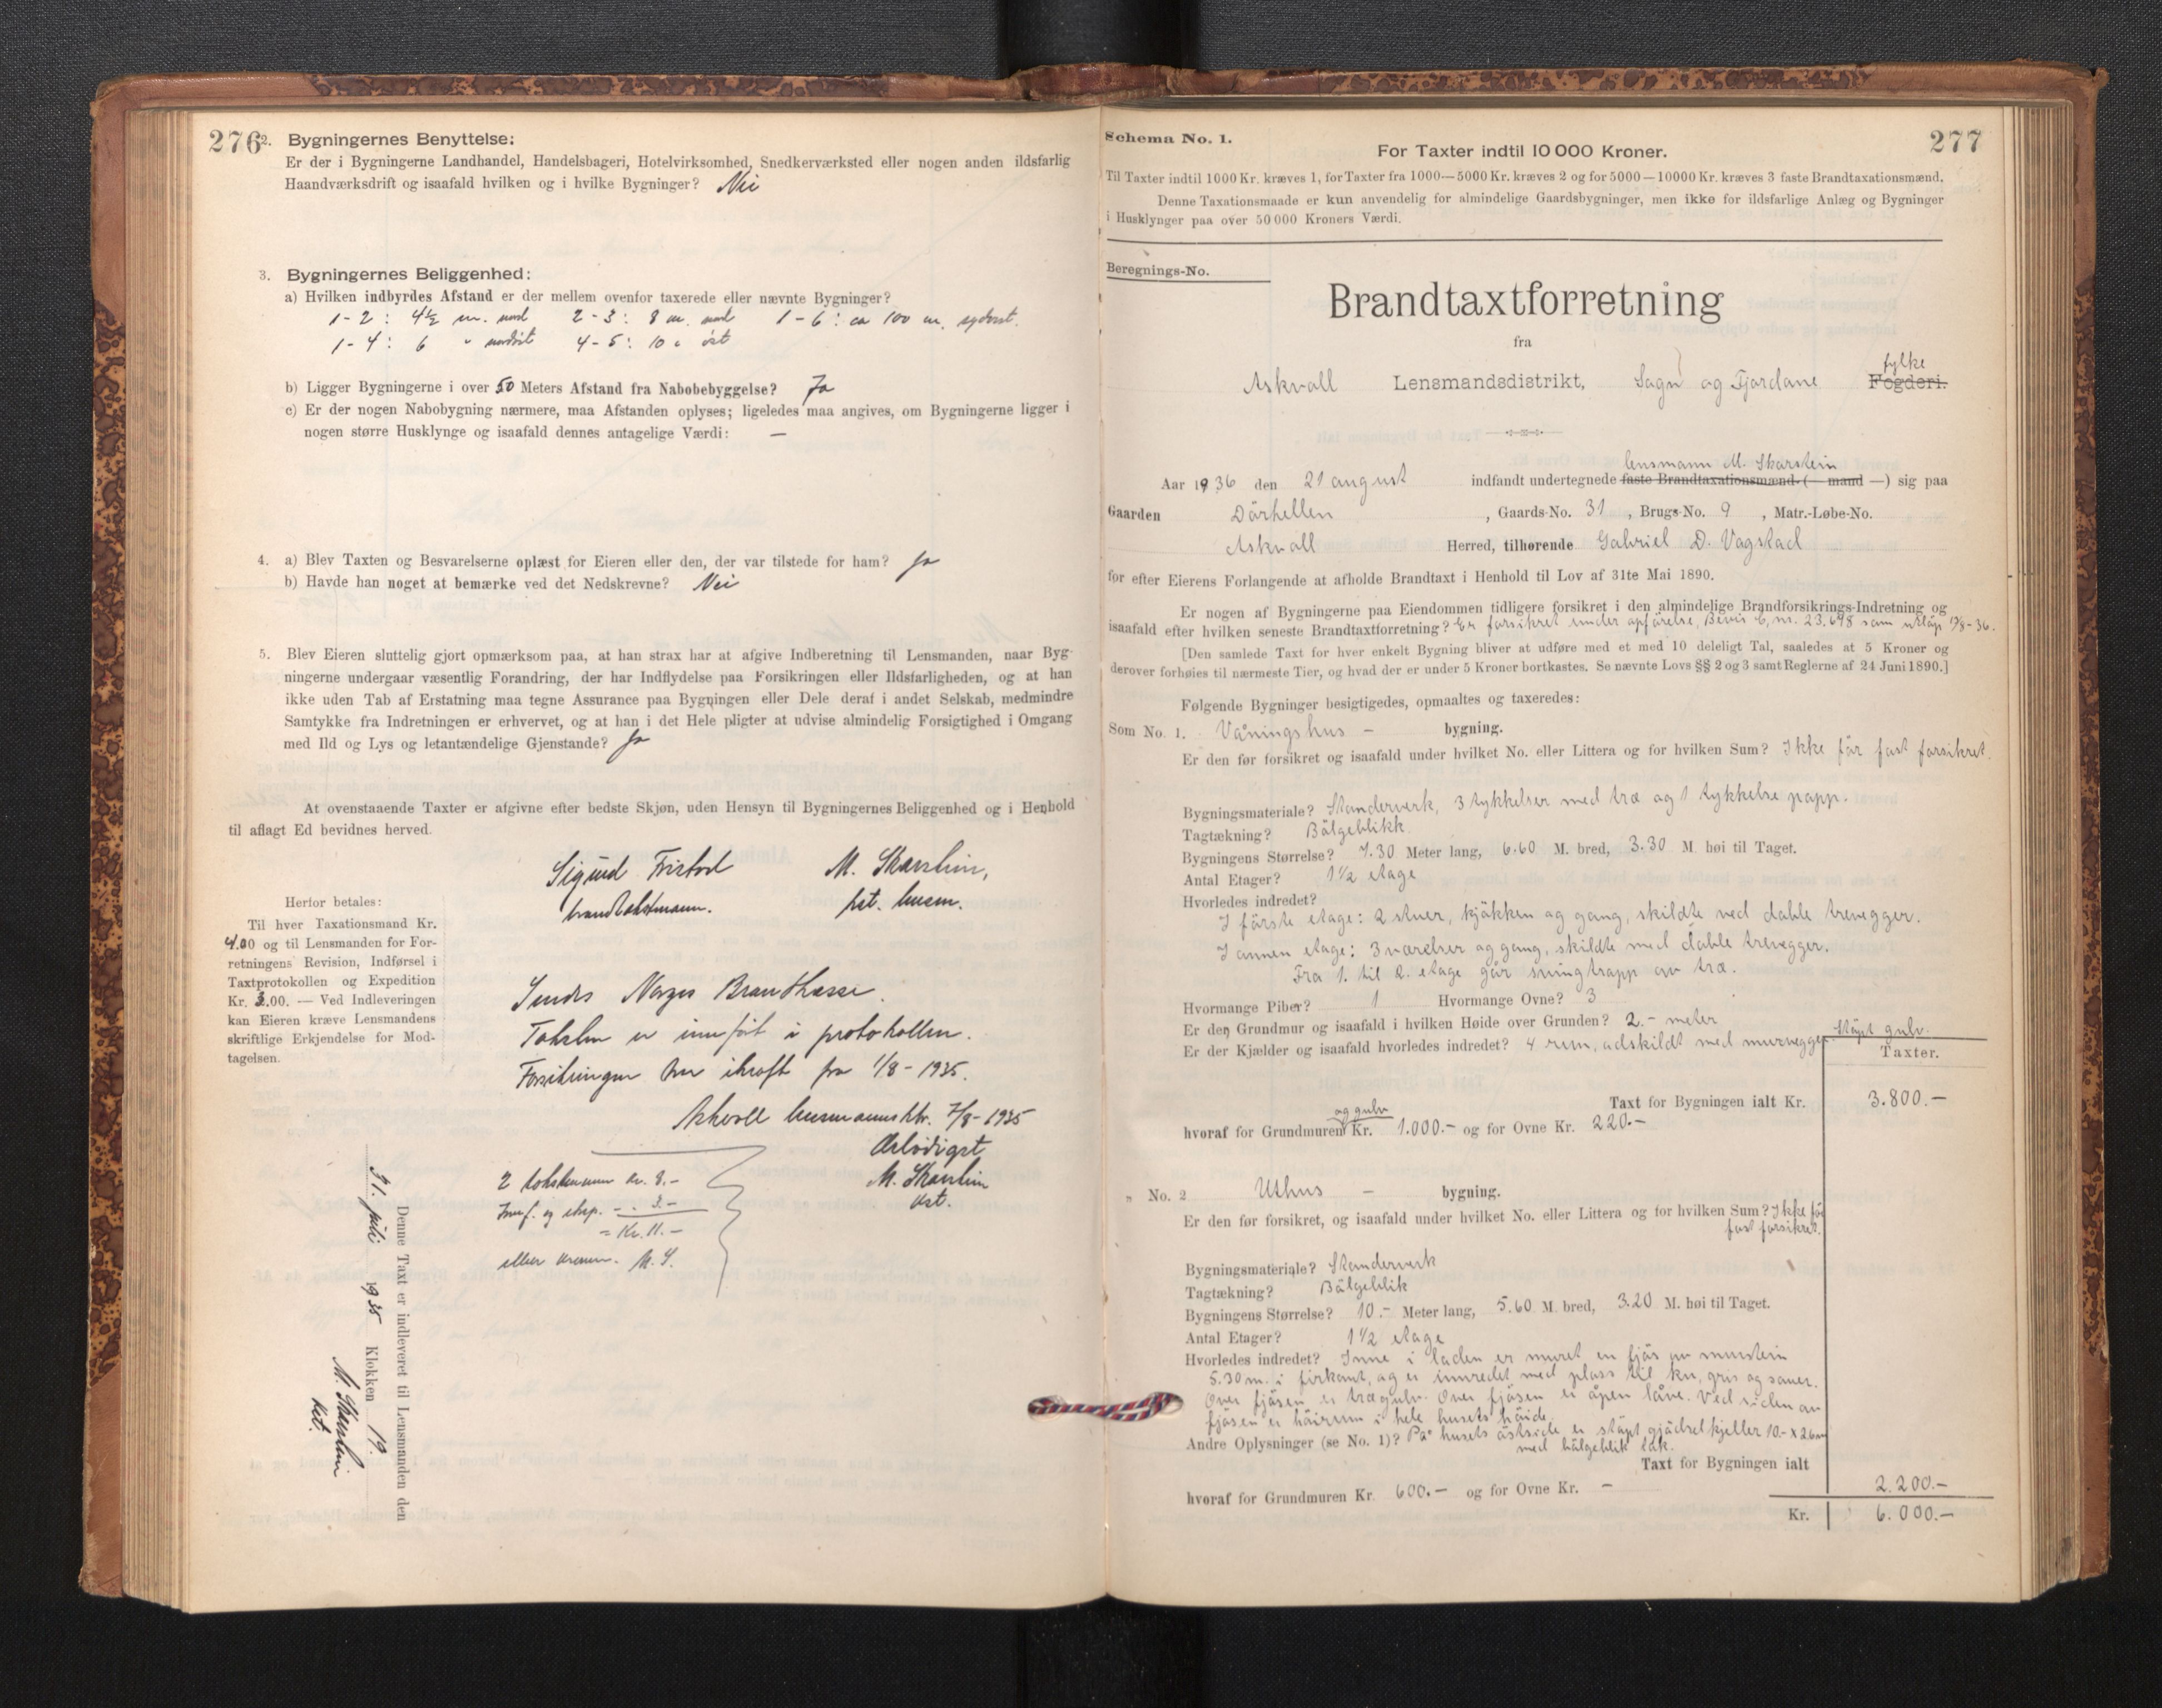 276
2. Bygningernes Benyttelse:
Er der i Bygningerne Landhandel, Handelsbageri, Hotelvirksomhed, Snedkerværksted eller nogen anden ildsfarlig
Haandværksdrift og isaafald hvilken og i hvilke Bygninger? Nei
3. Bygningernes Beliggenhed:
a) Hvilken indbyrdes Afstand er der mellem ovenfor taxerede eller nævnte Bygninger?
1-2: 4½ m. nord 2-3: 8 m. nord 1-6: ca 100 m. sydvest.
1-4: 6 " nordøst 4-5: 10 " øst
b) Ligger Bygningerne i over 50 Meters Afstand fra Nabobebyggelse? Ja
c) Er der nogen Nabobygning nærmere, maa Afstanden oplyses; ligeledes maa angives, om Bygningerne ligger i
nogen større Husklynge og isaafald dennes antagelige Værdi: —
4. a) Blev Taxten og Besvarelserne oplæst for Eieren eller den, der var tilstede for ham? Ja
b) Havde han noget at bemærke ved det Nedskrevne? Nei
5. Blev Eieren sluttelig gjort opmærksom paa, at han strax har at afgive Indberetning til Lensmanden, naar Byg-
ningerne undergaar væsentlig Forandring, der har Indflydelse paa Forsikringen eller Ildsfarligheden, og at han
ikke uden Tab af Erstatning maa tegne Assurance paa Bygningen eller Dele deraf i andet Selskab, medmindre
Samtykke fra Indretningen er erhvervet, og at han i det Hele pligter at udvise almindelig Forsigtighed i Omgang
med Ild og Lys og letantændelige Gjenstande? Ja
At ovenstaaende Taxter er afgivne efter bedste Skjøn, uden Hensyn til Bygningernes Beliggenhed og i Henhold
til aflagt Ed bevidnes herved.
Sigurd M. Skarstein,
brandtakstmann. kst. lensm.
Herfor betales:
Til hver Taxationsmand Kr.
4.00 og til Lensmanden for For-
retningens Revision, Indførsel i
Taxtprotokollen og Expedition
Kr. 3.00. — Ved Indleveringen
kan Eieren kræve Lensmandens
skriftlige Erkjendelse for Mod-
tagelsen.
Sendes Norges Brandkasse.
Taksten er innført i protokollen.
Forsikringen trer ikraft fra 1/8-1935.
Askvoll lensmannsktr. 7/8-1935
Ærbødigst
M. Skarstein
kst.
2 takstmenn kr. 8.-
Innf. og eksp. - . 3.-
= Kr. 11.-
M. S.
Denne Taxt er indleveret til Lensmanden den
31. juli 1935 Klokken 19.
M. Skarstein
kst.
Schema No. 1.
277
For Taxter indtil 10 000 Kroner.
Til Taxter indtil 1000 Kr. kræves 1, for Taxter fra 1000—5000 Kr. kræves 2 og for 5000—10000 Kr. kræves 3 faste Brandtaxationsmænd.
Denne Taxationsmaade er kun anvendelig for almindelige Gaardsbygninger, men ikke for ildsfarlige Anlæg og Bygninger
i Husklynger paa over 50 000 Kroners Værdi.
Beregnings-No.
Brandtaxtforretning
fra
fylke
Askvoll Lensmandsdistrikt, Sogn og Fjordane Fogderi.
lensmann M. Skarstein
Aar 1936 den 21 august indfandt undertegnede faste Brandtaxationsmænd (— mand —) sig paa
Gaarden Dårhellen, Gaards-No. 31, Brugs-No. 9, Matr.-Løbe-No.
Askvoll Herred, tilhørende Gabriel D. Vagstad
for efter Eierens Forlangende at afholde Brandtaxt i Henhold til Lov af 31te Mai 1890.
Er nogen af Bygningerne paa Eiendommen tidligere forsikret i den almindelige Brandforsikrings-Indretning og
isaafald efter hvilken seneste Brandtaxtforretning? Er forsikret under opførelse, Bevis C, nr. 23.698 som utløp 13/8-36.
[Den samlede Taxt for hver enkelt Bygning bliver at udføre med et med 10 deleligt Tal, saaledes at 5 Kroner og
derover forhøies til nærmeste Tier, og hvad der er under 5 Kroner bortkastes. Se nævnte Lovs §§ 2 og 3 samt Reglerne af 24 Juni 1890.]
Følgende Bygninger besigtigedes, opmaaltes og taxeredes:
Som No. 1. Våningshus – bygning.
Er den før forsikret og isaafald under hvilket No. eller Littera og for hvilken Sum? Ikke før fast forsikret.
Bygningsmateriale? Standerverk, 3 tykkelser med træ og 1 tykkelse papp.
Tagtækning? Bålgeblikk
Bygningens Størrelse? 7.30 Meter lang, 6.60 M. bred, 3.30 M. høi til Taget.
Antal Etager? 1½ etage
Hvorledes indredet?
I første etage: 2 stuer, kjøkken og gang, skildte ved doble trevegger.
I annen etage: 3 værelser og gang, skildte med doble trevegger.
Fra 1. til 2. etage går svingtrapp av træ.
Hvormange Piber? 1 Hvormange Ovne? 3
Er den Grundmur og isaafald i hvilken Høide over Grunden? 2.- meter
Er der Kjælder og isaafald hvorledes indredet? 4 rum, adskildt med murvegger. Støpt gulv.
Taxter.
Taxt for Bygningen ialt Kr. 3.800.—
og gulv
hvoraf for Grundmuren Kr. 1.000.- og for Ovne Kr. 220.-
" No. 2 Uthus – bygning.
Er den før forsikret, og isaafald under hvilket No. eller Littera og for hvilken Sum? Ikke før
fast forsikret.
Bygningsmateriale? Standerverk
Tagtækning? Bålgeblik
Bygningens Størrelse? 10.- Meter lang, 5.60 M. bred, 3.20 M. høi til Taget.
Antal Etager? 1½ etage
Hvorledes indredet? Inne i laden er muret en fjøs av murstein
5.30 m. i firkant, og er innredet med plass til ku, gris og sauer.
Over fjøsen er trægulv. Over fjøsen er åpen låve. Ved siden av
fjøsen er høirum i hele husets høide.
Andre Oplysninger (se No. 1)? På husets østside er støpt gjødselkjeller 10.- x 2.6m
med bålgeblik tak.
Taxt for Bygningen ialt
2.200.—
hvoraf for Grundmuren Kr. 600.— og for Ovne Kr. —
Kr. 6.000.—